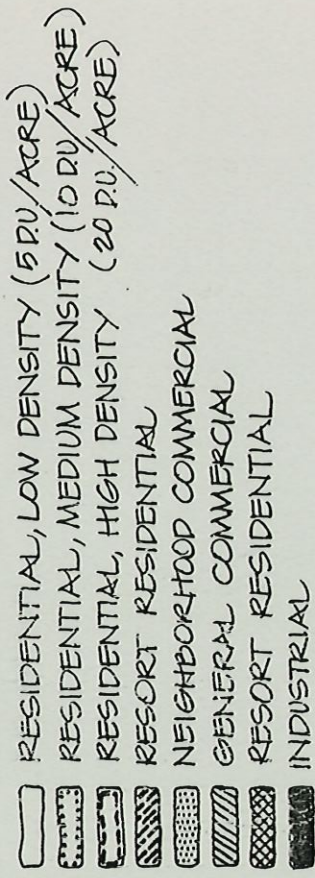 RESIDENTIAL, LOW DENSITY (5 D.U/ACRE)
RESIDENTIAL, MEDIUM DENSITY (10 D.U/ACRE)
RESIDENTIAL, HIGH DENSITY (20 D.U./ACRE)
RESORT RESIDENTIAL
NEIGHBORHOOD COMMERCIAL
GENERAL COMMERCIAL
RESORT RESIDENTIAL
INDUSTRIAL